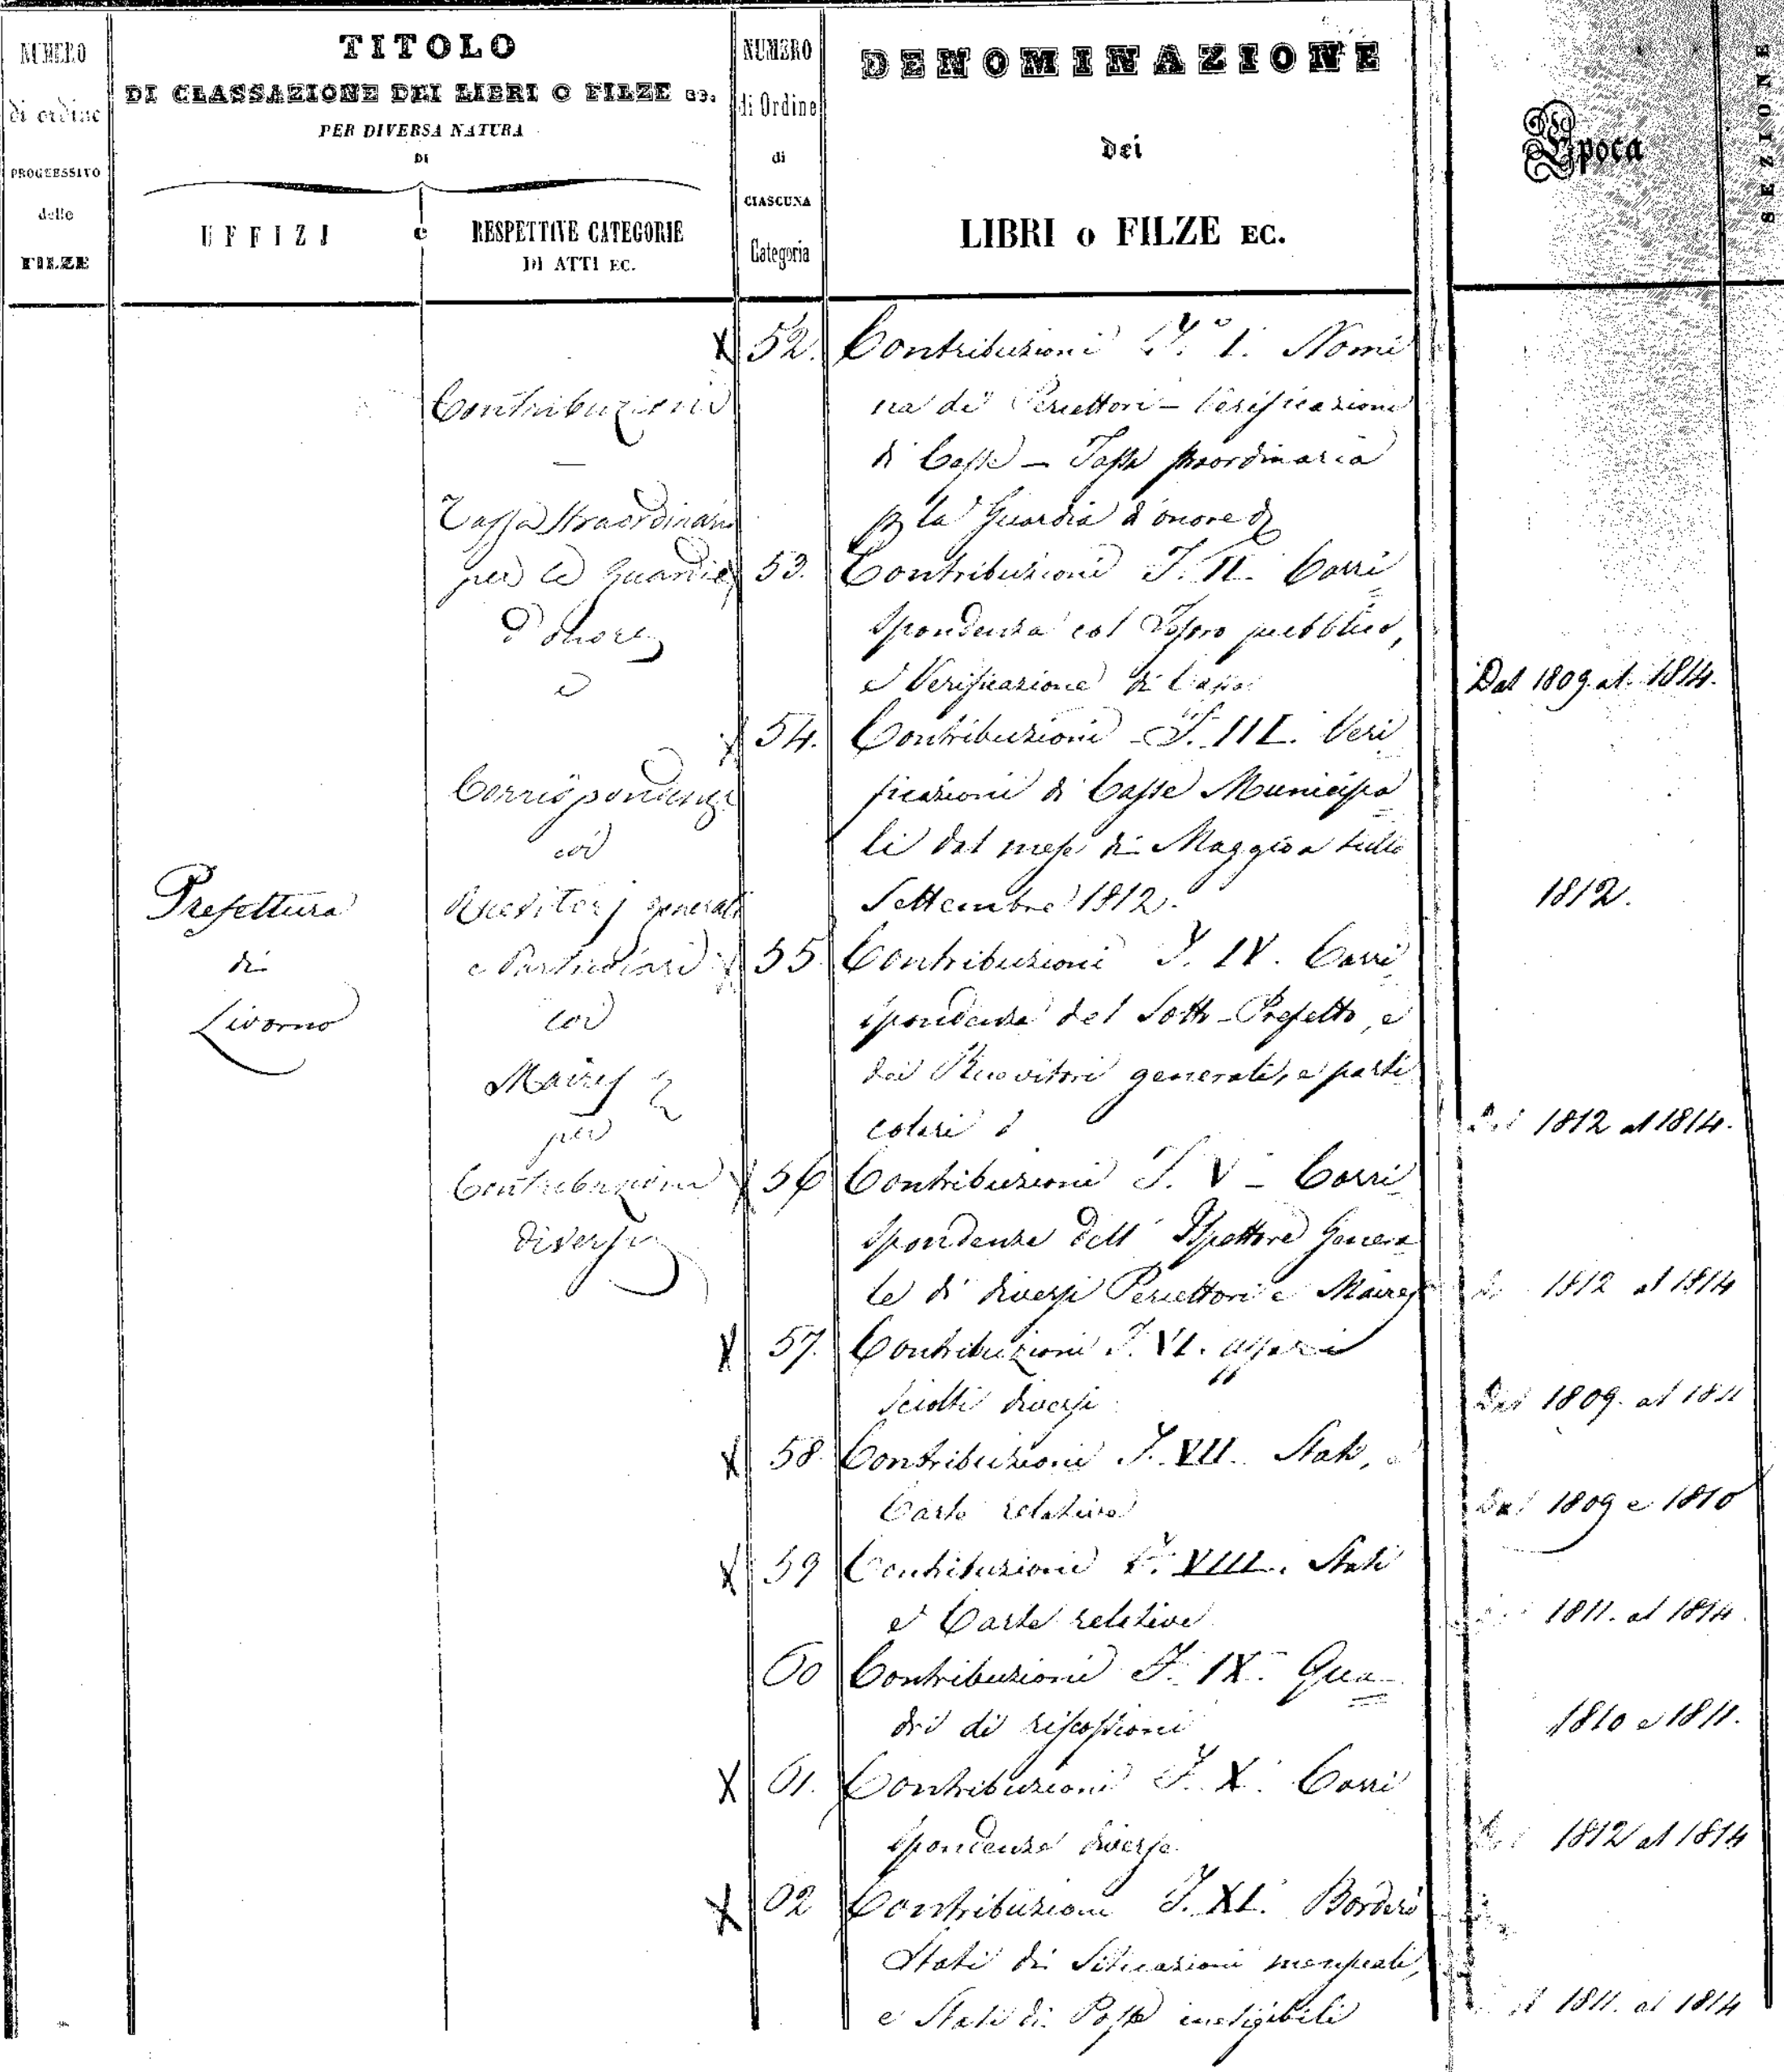 NUMERO
di ordine
PROGRESSIVO
delle
FILZE
TITOLO
DI CLASSAZIONE DEI LIBRI O FILZE EC.
PER DIVERSA NATURA
DI
UFFIZJ
e
RESPETTIVE CATEGORIE
DI ATTI EC.
NUMERO
di Ordine
di
CIASCUNA
Categoria
DENOMINAZIONE
dei
LIBRI o FILZE EC.
Epoca
SEZIONE
Prefettura
di
Livorno
Contribuzioni
—
Tassa straordinaria
per le Guardie
d'onore
e
Corrispondenze
coi
Ricevitorj generali
e Particolari
coi
Maires
per
Contribuzioni
diverse
X 52. Contribuzioni F.ª I. Nomi
na dei Percettori – Verificazione
di Casse – Tassa straordinaria
la Guardia d'onore
53. Contribuzioni F. II. Corri
spondenza col Tesoro pubblico,
e Verificazione di Cassa
Dal 1809. al 1814.
X 54. Contribuzioni F. III. Veri
ficazioni di Casse Municipa
li dal mese di Maggio a tutto
Settembre 1812.
1812.
X 55 Contribuzioni F. IV. Corri
spondenza del Sotto-Prefetto, e
dei Ricevitori generali, e parti
colari
1812 al 1814.
X 56 Contribuzioni F. V – Corri
spondenza dell' Ispettore Genera
le di diversi Percettori e Maires
1812 al 1814
X 57. Contribuzioni F. VI. affari
sciolti diversi
Dal 1809. al 1811
X 58 Contribuzioni F. VII. Stati, e
Carte relative
Dal 1809 e 1810
X 59 Contribuzioni F. VIII. Stati
e Carte relative
1811. al 1814.
60 Contribuzioni F. IX. Qua
dri di riscossioni
1810 e 1811.
X 61. Contribuzioni F. X. Corri
spondenze diverse
1812 al 1814
X 62 Contribuzioni F. XI. Borderò
Stati di Situazioni mensuali,
e Stati di Poste inesigibili
1811. al 1814